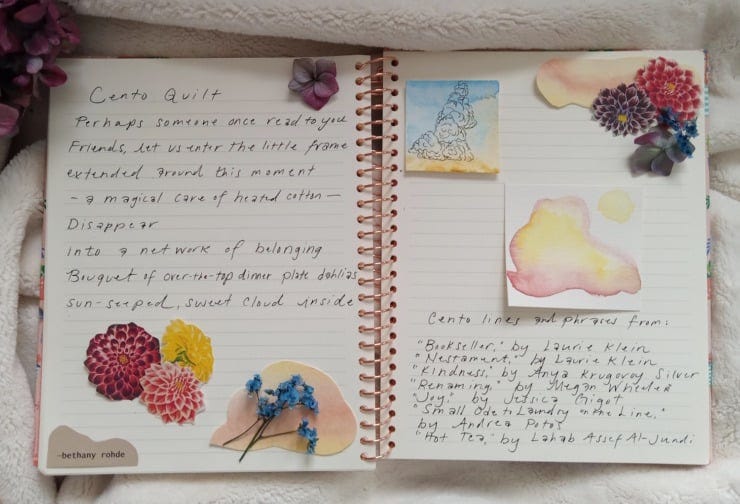 Cento Quilt
Perhaps someone once read to you
Friends, let us enter the little frame
extended around this moment
- a magical care of heated cotton -
Disappear
into a network of belonging
Bouquet of over-the-top dinner plate dahlias
sun-steeped, sweet cloud inside
-bethany rohde
Cento lines and phrases from:
"Bookseller," by Laurie Klein
"Nestament," by Laurie Klein
"Kindness," by Anya Krugovoy Silver
"Renaming," by Megan Wheeler
"Joy," by Jessica Gigot
"Small Ode to Laundry on the Line,"
by Andrea Potos
"Hot Tea," by Lahab Assef Al-Jundi